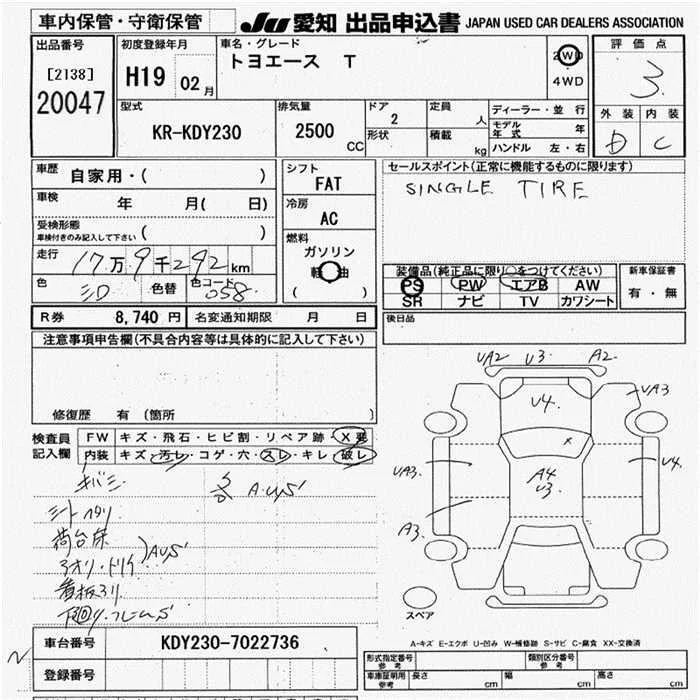 車内保管・守衛保管
JU 愛知 出品申込書 JAPAN USED CAR DEALERS ASSOCIATION
出品番号
[2138]
20047
初度登録年月
H19 02 月
車名・グレード
トヨエース T
2WD
4WD
評価点
3
外装 内装
D C
型式
KR-KDY230
排気量
2500 CC
ドア
2
形状
定員
人
積載
kg
ディーラー・並行
モデル年式 年
ハンドル 左・右
車歴
自家用・( )
車検
年 月( 日)
受検形態
車検付きのみ記入して下さい ( )
走行
17万9千292km
色
色替
色コード
058
シフト
FAT
冷房
AC
燃料
ガソリン
軽油
( )
セールスポイント(正常に機能するものに限ります)
SINGLE TIRE
装備品(純正品に限り○をつけてください)
PS PW エアB AW
SR ナビ TV カワシート
新車保証書
有・無
R券 8,740 円 名変通知期限 月 日
後日品
注意事項申告欄(不具合内容等は具体的に記入して下さい)
修復歴 有 (箇所 )
検査員
記入欄
FW キズ・飛石・ヒビ割・リペア跡・X要
内装 キズ・汚レ・コゲ・穴・スレ・キレ・破レ
キバミ
シートヘタリ
荷台床
アオリ・トリイ
AUS
看板アリ
下回り.フレームS
A.US
UA2 U3 A2
U4
UA3
UA3
A4
U3
U4
A3
スペア
A-キズ E-エクボ U-凹み W-補修跡 S-サビ C-腐食 XX-交換済
車台番号 KDY230-7022736
登録番号
型式指定番号
参考
類別区分番号
参考
車庫証明用
参考
長さ cm 幅 cm 高さ cm